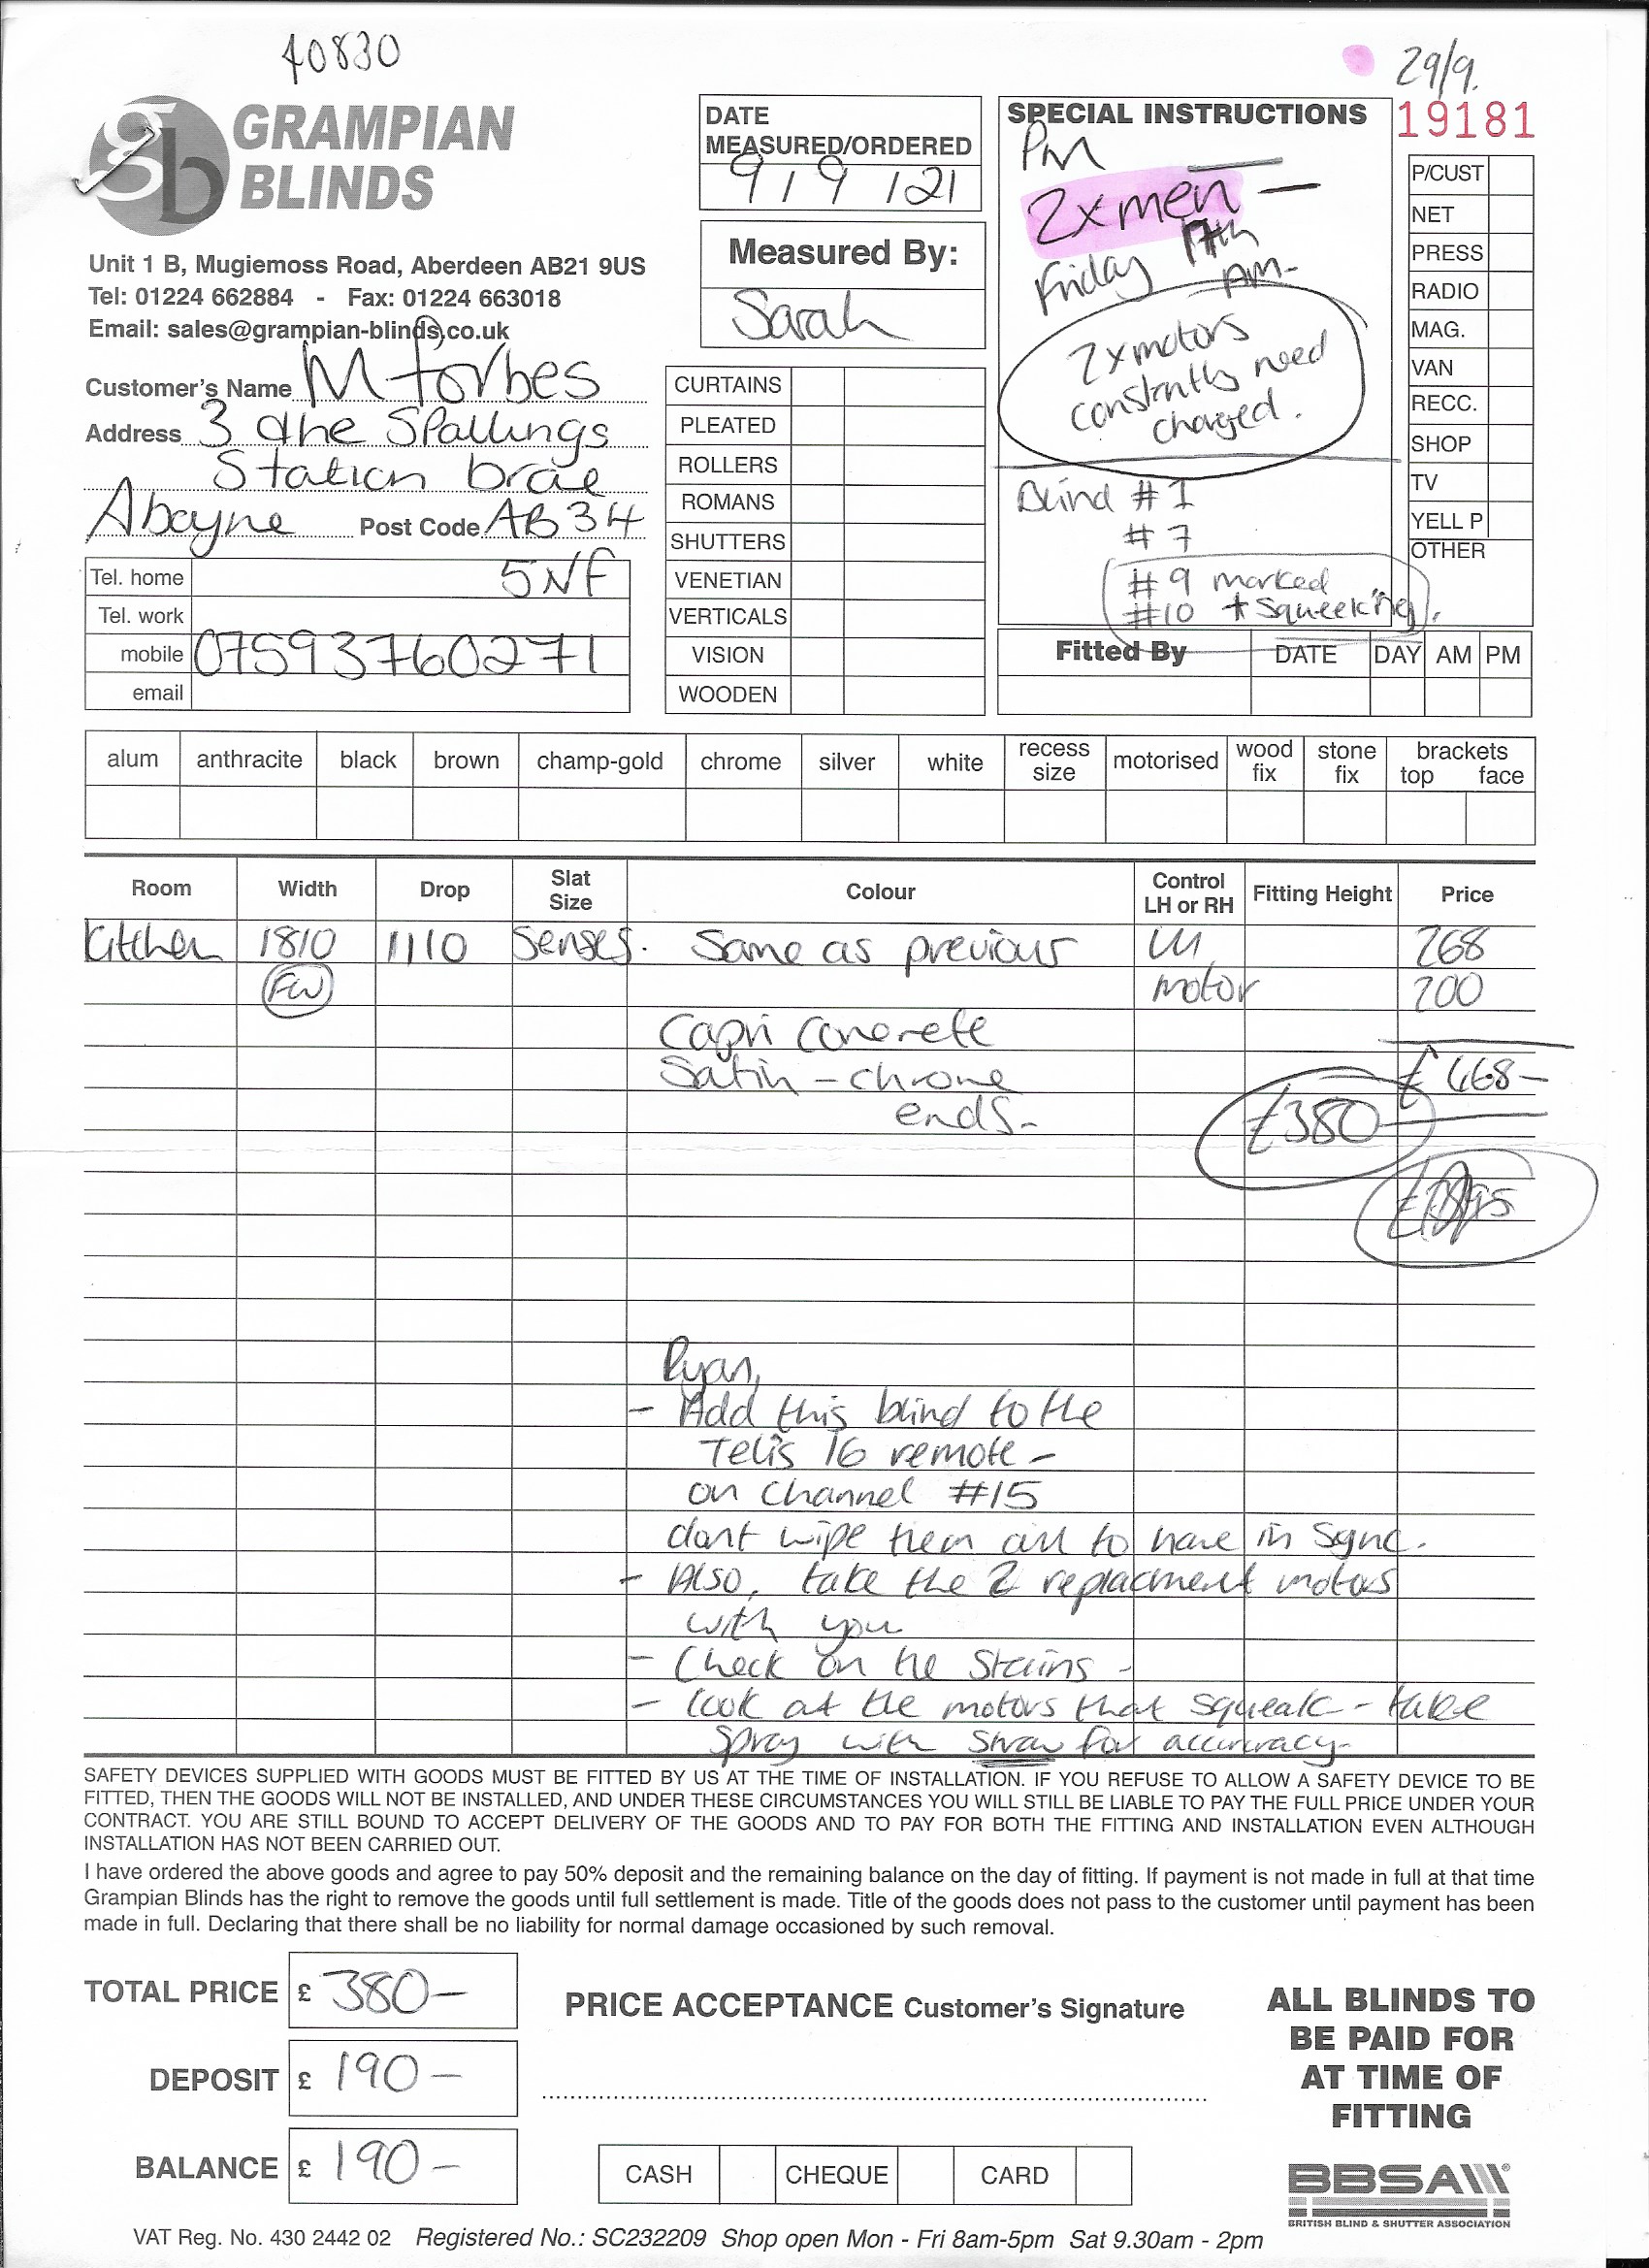 40830
29/9.
19181
GRAMPIAN
BLINDS
Unit 1 B, Mugiemoss Road, Aberdeen AB21 9US
Tel: 01224 662884 - Fax: 01224 663018
Email: sales@grampian-blinds.co.uk
Customer's Name M forbes
Address 3 the Spallings
Station brae
Aboyne Post Code AB34
5NF
Tel. home
Tel. work
mobile 07593760271
email
DATE
MEASURED/ORDERED
9 / 9 / 21
Measured By:
Sarah
CURTAINS
PLEATED
ROLLERS
ROMANS
SHUTTERS
VENETIAN
VERTICALS
VISION
WOODEN
SPECIAL INSTRUCTIONS
PM
2xmen —
Friday 17th
AM-
2xmotors
constantly need
charged.
Blind #1
#7
#9 marked
#10 + squeeking.
P/CUST
NET
PRESS
RADIO
MAG.
VAN
RECC.
SHOP
TV
YELL P
OTHER
Fitted By DATE DAY AM PM
alum anthracite black brown champ-gold chrome silver white recess size motorised wood fix stone fix brackets top face
Room Width Drop Slat Size Colour Control LH or RH Fitting Height Price
Kitchen 1810 1110 Senses. Same as previous LH 268
FW motor 200
Capri Concrete
Satin - chrome £468-
ends- £380
Ryan,
- Add this blind to the
Telis 16 remote -
on channel #15
dont wipe them all to have in sync.
- Also, take the 2 replacment motors
with you
- Check on the stains -
- look at the motors that squeak - take
spray with straw for accuracy-
SAFETY DEVICES SUPPLIED WITH GOODS MUST BE FITTED BY US AT THE TIME OF INSTALLATION. IF YOU REFUSE TO ALLOW A SAFETY DEVICE TO BE
FITTED, THEN THE GOODS WILL NOT BE INSTALLED, AND UNDER THESE CIRCUMSTANCES YOU WILL STILL BE LIABLE TO PAY THE FULL PRICE UNDER YOUR
CONTRACT. YOU ARE STILL BOUND TO ACCEPT DELIVERY OF THE GOODS AND TO PAY FOR BOTH THE FITTING AND INSTALLATION EVEN ALTHOUGH
INSTALLATION HAS NOT BEEN CARRIED OUT.
I have ordered the above goods and agree to pay 50% deposit and the remaining balance on the day of fitting. If payment is not made in full at that time
Grampian Blinds has the right to remove the goods until full settlement is made. Title of the goods does not pass to the customer until payment has been
made in full. Declaring that there shall be no liability for normal damage occasioned by such removal.
TOTAL PRICE £ 380-
DEPOSIT £ 190-
BALANCE £ 190-
PRICE ACCEPTANCE Customer's Signature
CASH CHEQUE CARD
ALL BLINDS TO
BE PAID FOR
AT TIME OF
FITTING
BBSA
BRITISH BLIND & SHUTTER ASSOCIATION
VAT Reg. No. 430 2442 02 Registered No.: SC232209 Shop open Mon - Fri 8am-5pm Sat 9.30am - 2pm